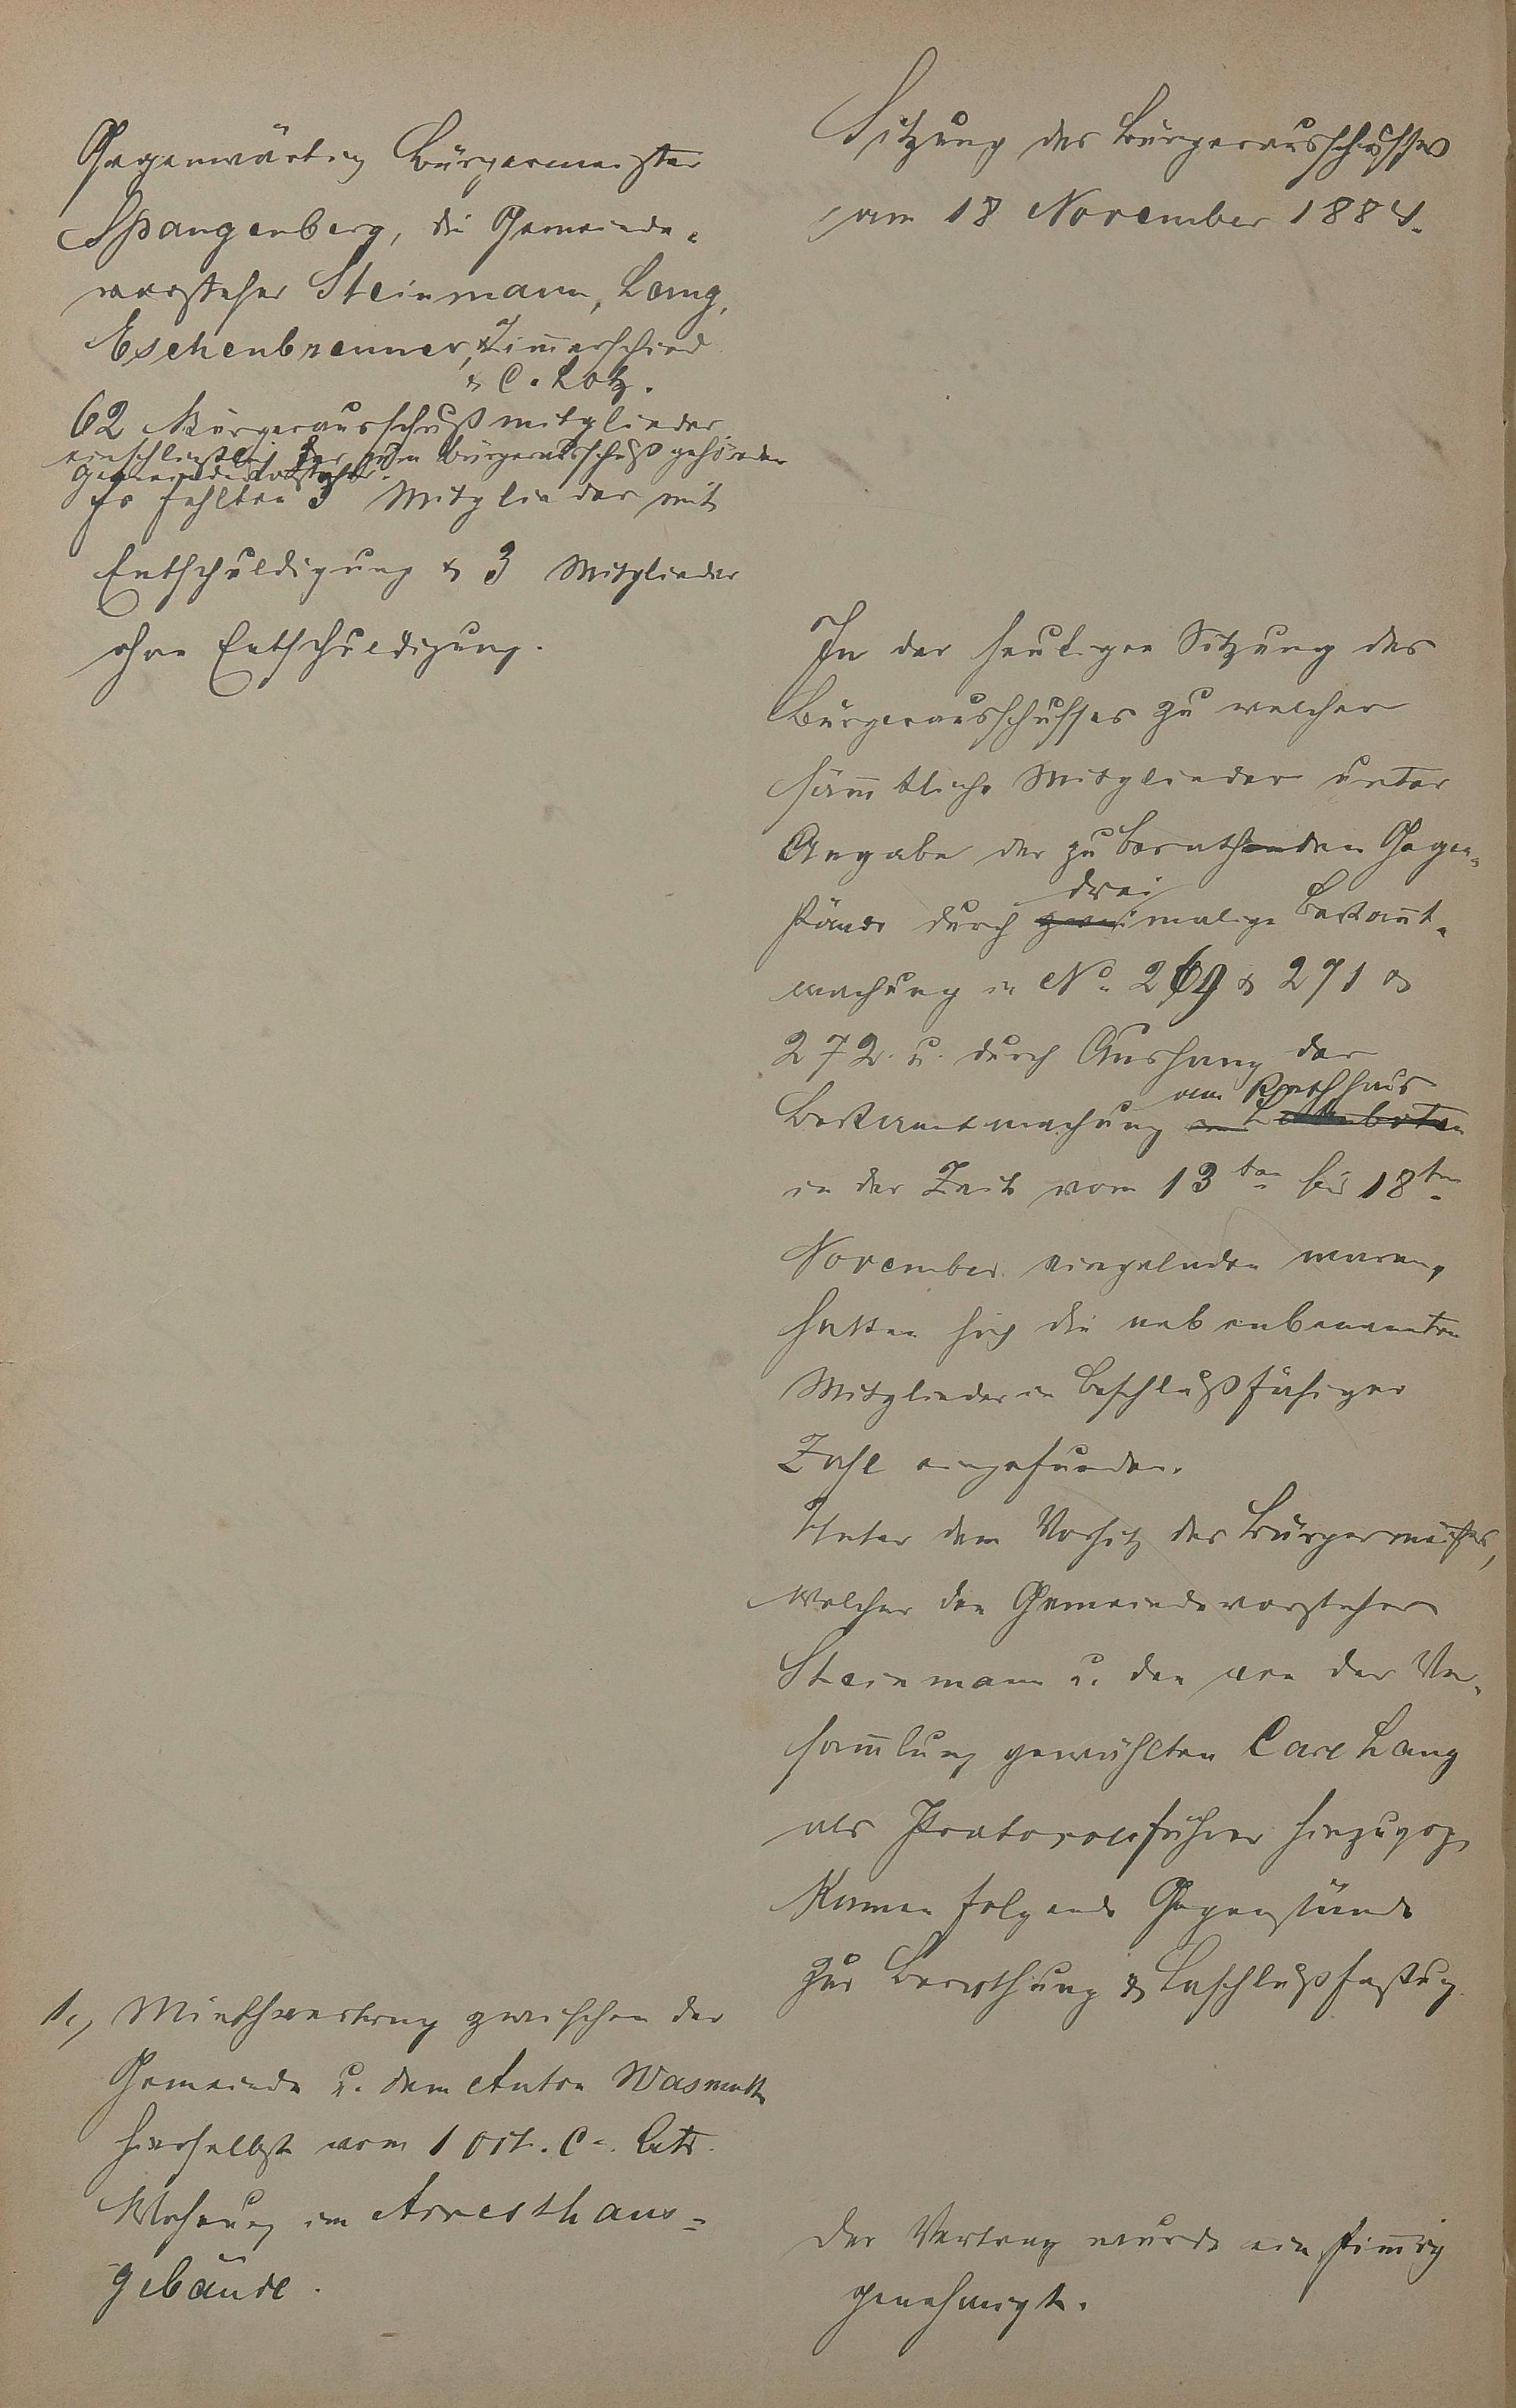 Gegenwärtig Bürgermeister
Spangenberg, die Gemeinde-
vorsteher Steinmann, Lang,
Eschenbrenner, Zimmerschied
& C. Lotz.
62 Bürgerausschußmitglieder
einschließlich der zum Bürgerausschuß gehörenden
Gemeindevorsteher.
Es fehlten 3 Mitglieder mit
Entschuldigung & 3 Mitglieder
ohne Entschuldigung.
1., Miethvertrag zwischen der
Gemeinde u. dem Anton Wasmuth
hierselbst vom 1 Oct. c. btr.
Wohnung im Arresthaus=
gebäude.
Sitzung des Bürgerausschusses
vom 18 November 1884.
In der heutigen Sitzung des
Bürgerausschusses zu welcher
sämtliche Mitglieder unter
Angabe der zu berathenden Gegen-
stände durch zwei drei malige Bekannt-
machung in No. 269 & 271 &
272 u. durch Aushang der
Bekanntmachung am Rathhaus
in der Zeit vom 13ten bis 18ten
November eingeladen waren,
hatten sich die nebenbenannten
Mitglieder in beschlußfähiger
Zahl eingefunden.
Unter dem Vorsitz des Bürgermeisters,
welcher den Gemeindevorsteher
Steinmann u. den von der Ver-
sammlung gewählten Carl Lang
als Protocollführer hinzuzog,
kamen folgende Gegenstände
zur Berathung & Beschlußfassung
Der Vertrag wurde einstimmig
genehmigt.